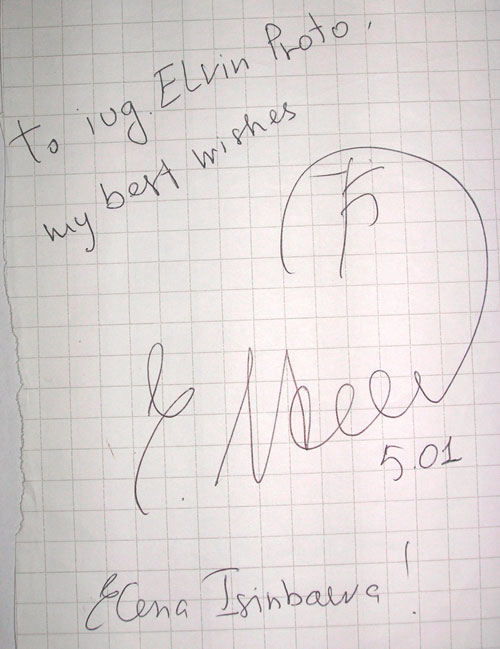 To iug. Elvin Proto,
my best wishes
5.01
Elena Isinbaeva!